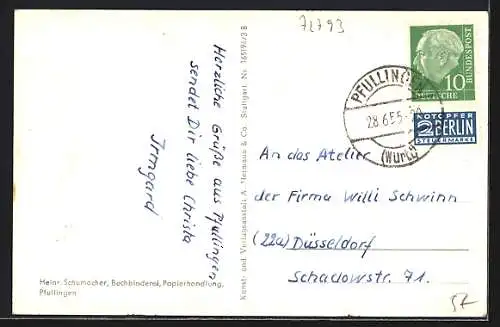 72793
Herzliche Grüße aus Pfullingen
sendet Dir liebe Christa
Irmgard
Heinr. Schumacher, Buchbinderei, Papierhandlung,
Pfullingen
Kunst- und Verlagsanstalt A. Hermann & Co. Stuttgart. Nr.
DEUTSCHE BUNDESPOST
10
PFULLINGEN
28.6.55
(Württ)
NOTOPFER
2 BERLIN
STEUERMARKE
An das Atelier
der Firma Willi Schwinn
(22a) Düsseldorf
Schadowstr. 71.
57